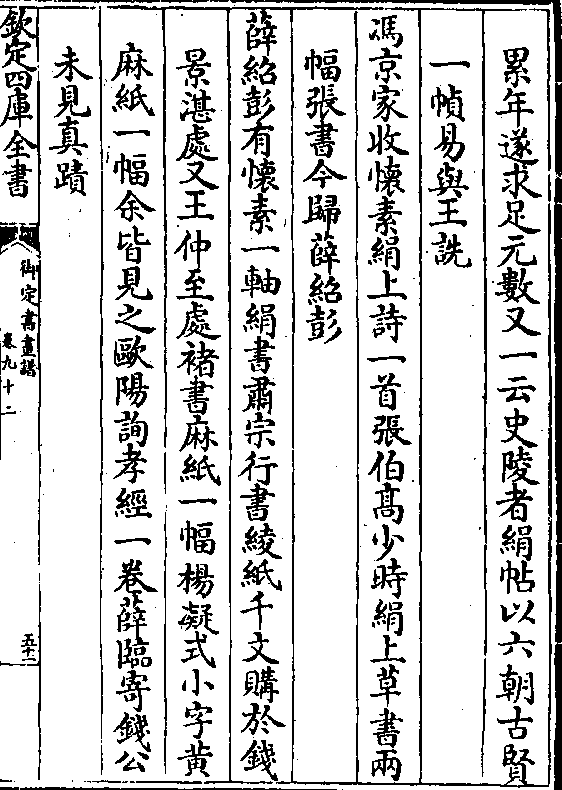 累年遂求足元數又一云史陵者絹帖以六朝古賢
一幀易與王詵
馮京家收懷素絹上詩一首張伯髙少時絹上草書兩
幅張書今歸薛紹彭
薛紹彭有懷素一軸絹書肅宗行書綾紙千文購於錢
景湛處又王仲至處褚書麻紙一幅楊凝式小字黄
麻紙一幅余皆見之歐陽詢孝經一卷薛臨寄錢公
未見真蹟
欽定四庫全書
御定書畫譜
卷九十二
五十二